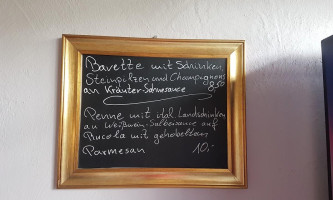 Bavette mit Schinken,
Steinpilzen und Champignons
an Kräuter-Sahnesauce 8,50
Penne mit ital. Landschinken
an Weißwein-Salbeisauce auf
Rucola mit gehobeltem
Parmesan 10,-